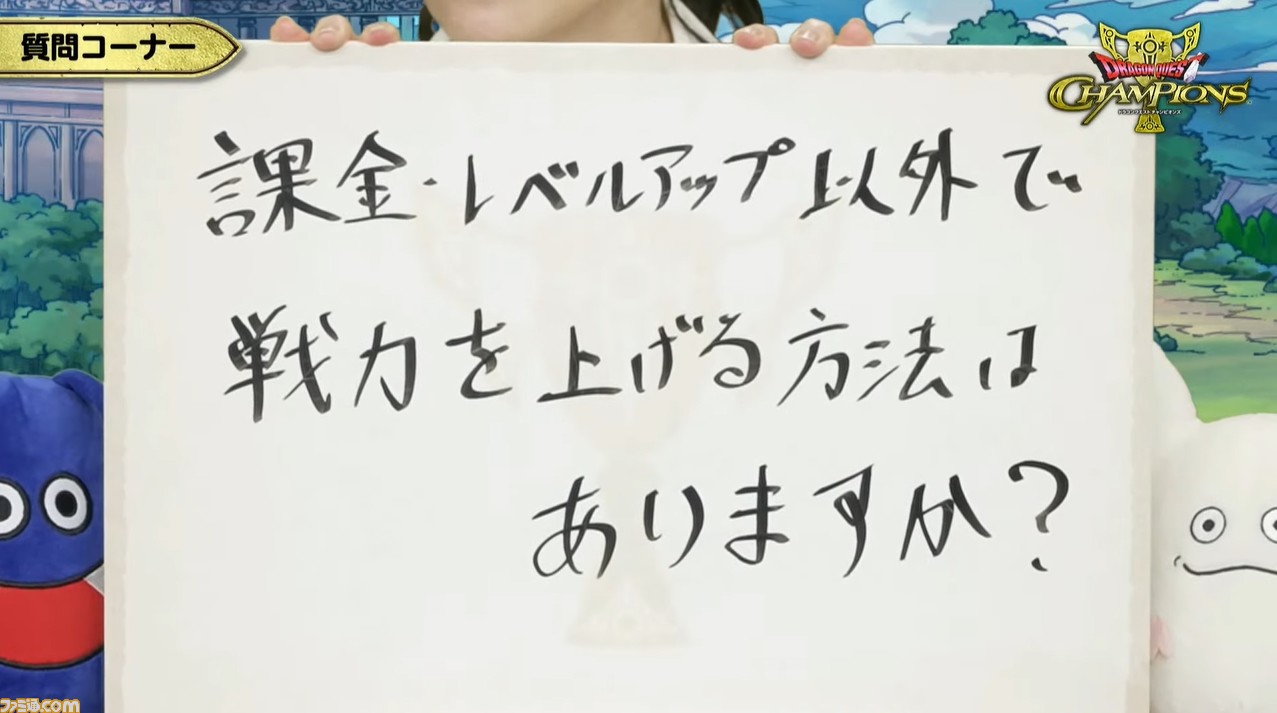 質問コーナー
DRAGON QUEST
CHAMPIONS
ドラゴンクエスト チャンピオンズ
課金・レベルアップ以外で
戦力を上げる方法は
ありますか？
ファミ通.com